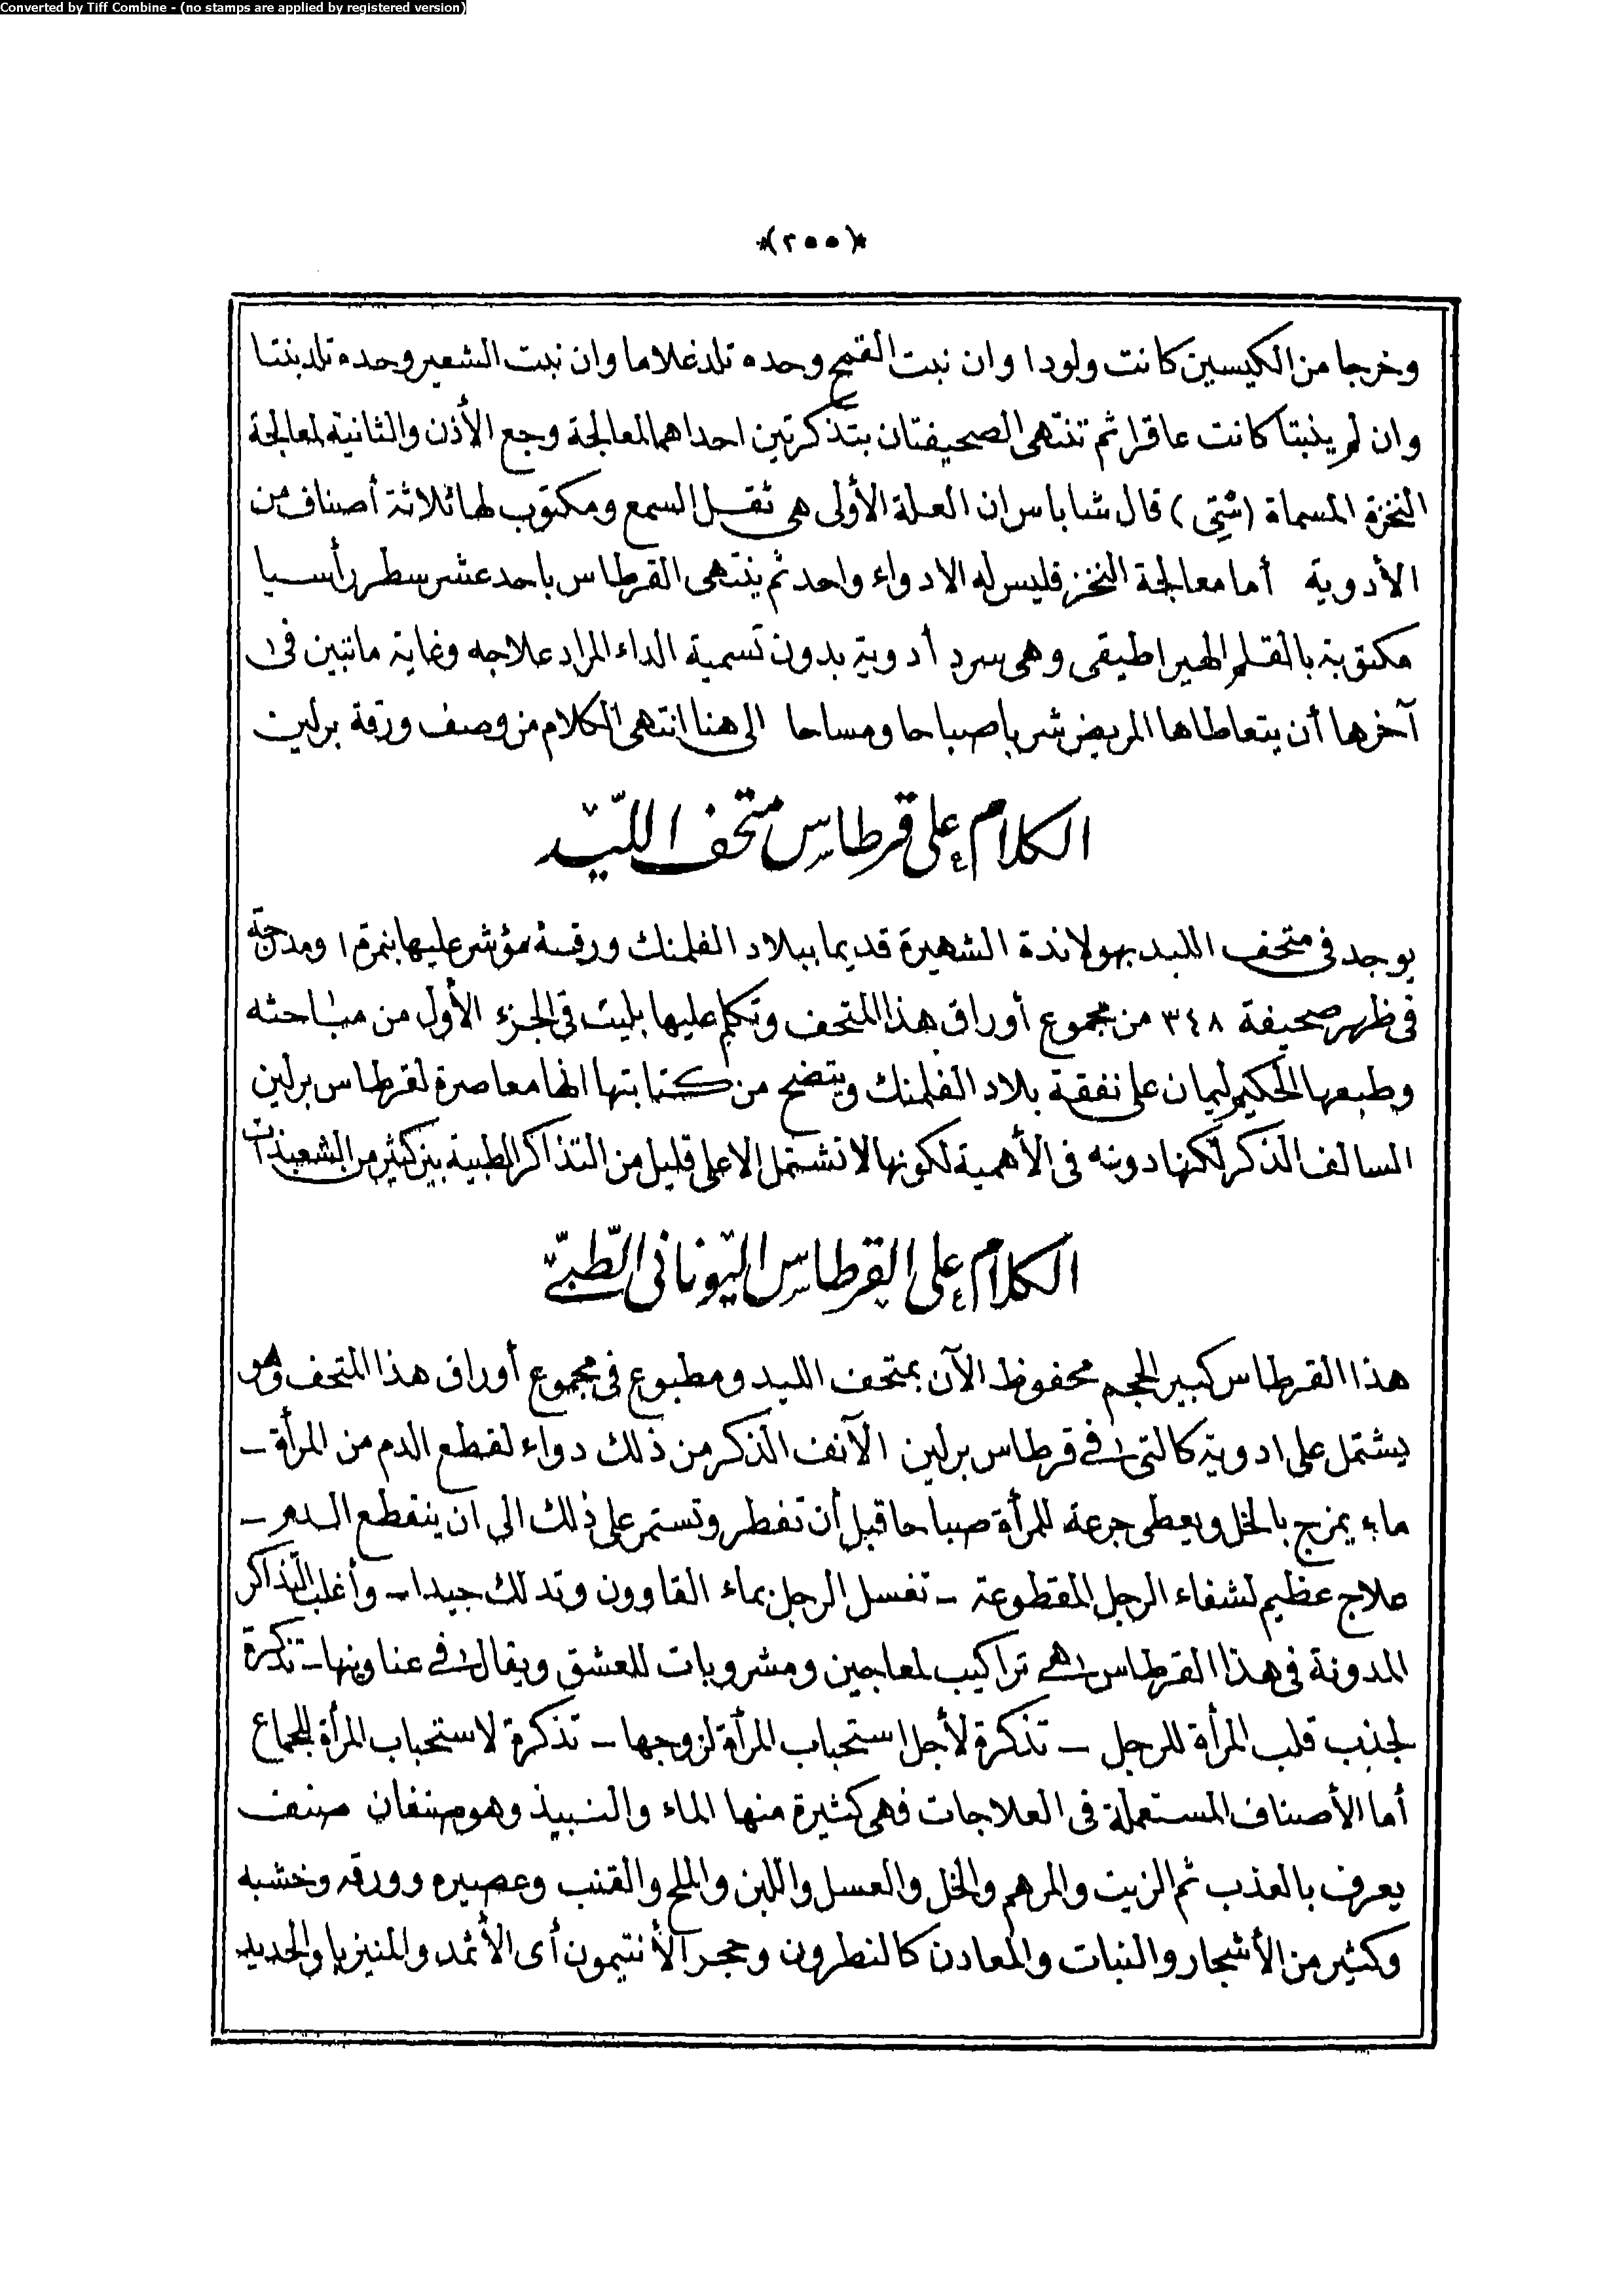 Converted by Tiff Combine - (no stamps are applied by registered version)
*(٢٥٥)*
وخرجا من الكيسين كانت ولودا وان نبت القمح وحده تلد غلاما وان نبت الشعير وحده تلد بنتا
وان لم ينبتا كانت عاقرا ثم تنتهى الصحيفتان بتذكرتين احداهما لمعالجة وجع الأذن والثانية لمعالجة
النخزة المسماة (شتى) قال شاباس ان العلة الأولى هى ثقل السمع ومكتوب لها ثلاثة أصناف من
الأدوية أما معالجة النخز فليس له الا دواء واحد ثم ينتهى القرطاس باحد عشر سطر رأسيا
مكتوبة بالقلم الهيراطيقى وهى سرد أدوية بدون تسمية الداء المراد علاجه وغاية مانبين فى
آخرها أن يتعاطاها المريض شربا صباحا ومساحا الى هنا انتهى الكلام من وصف ورقة برلين
الكلام على قرطاس متحف الليد
يوجد فى متحف الليد بهولاندة الشهيرة قديما ببلاد الفلمنك ورقة مؤشر عليها بنمرة ١ ومدرجة
فى ظهر صحيفة ٣٤٨ من مجموع أوراق هذا المتحف وتكلم عليها بليت فى الجزء الأول من مباحثه
وطبعها الحكيم ليمان على نفقة بلاد الفلمنك ويتضح من كتابتها انها معاصرة لقرطاس برلين
السالف الذكر لكنها دونه فى الأهمية لكونها لا تشتمل الا على قليل من التذاكر الطبية بين كثير من الشعبذات
الكلام على القرطاس اليونانى الطبى
هذا القرطاس كبير الحجم محفوظ الآن بمتحف الليد ومطبوع فى مجموع أوراق هذا المتحف وهو
يشتمل على ادوية كالتى فى قرطاس برلين الآنف الذكر من ذلك دواء لقطع الدم من المرأة –
ماء يمزج بالخل ويعطى جرعة للمرأة صباحا قبل أن تفطر وتستمر على ذلك الى ان ينقطع الدم –
علاج عظيم لشفاء الرجل المقطوعة – تغسل الرجل بماء القاوون وتدلك جيدا – وأغلب التذاكر
المدونة فى هذا القرطاس هى تراكيب لمعاجين ومشروبات للعشق ويقال فى عناوينها – تذكرة
لجذب قلب المرأة للرجل – تذكرة لأجل استحباب المرأة لزوجها – تذكرة لاستحباب المرأة للجماع
أما الأصناف المستعملة فى العلاجات فهى كثيرة منها الماء والنبيذ وهو صنفان صنف
يعرف بالعذب ثم الزيت والمرهم والخل والعسل واللبن والملح والقنب وعصيره وورقه وخشبه
وكثير من الأشجار والنبات والمعادن كالنطرون وحجر الأنتيمون أى الأثمد والمنيزيا والحديد